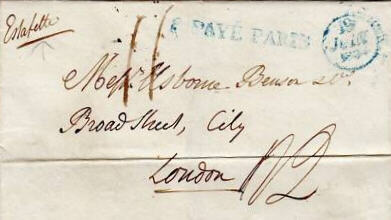 Estafette
PAYÉ PARIS
Messrs Osborne Benson & Co.
Broad Street, City
London
1/2